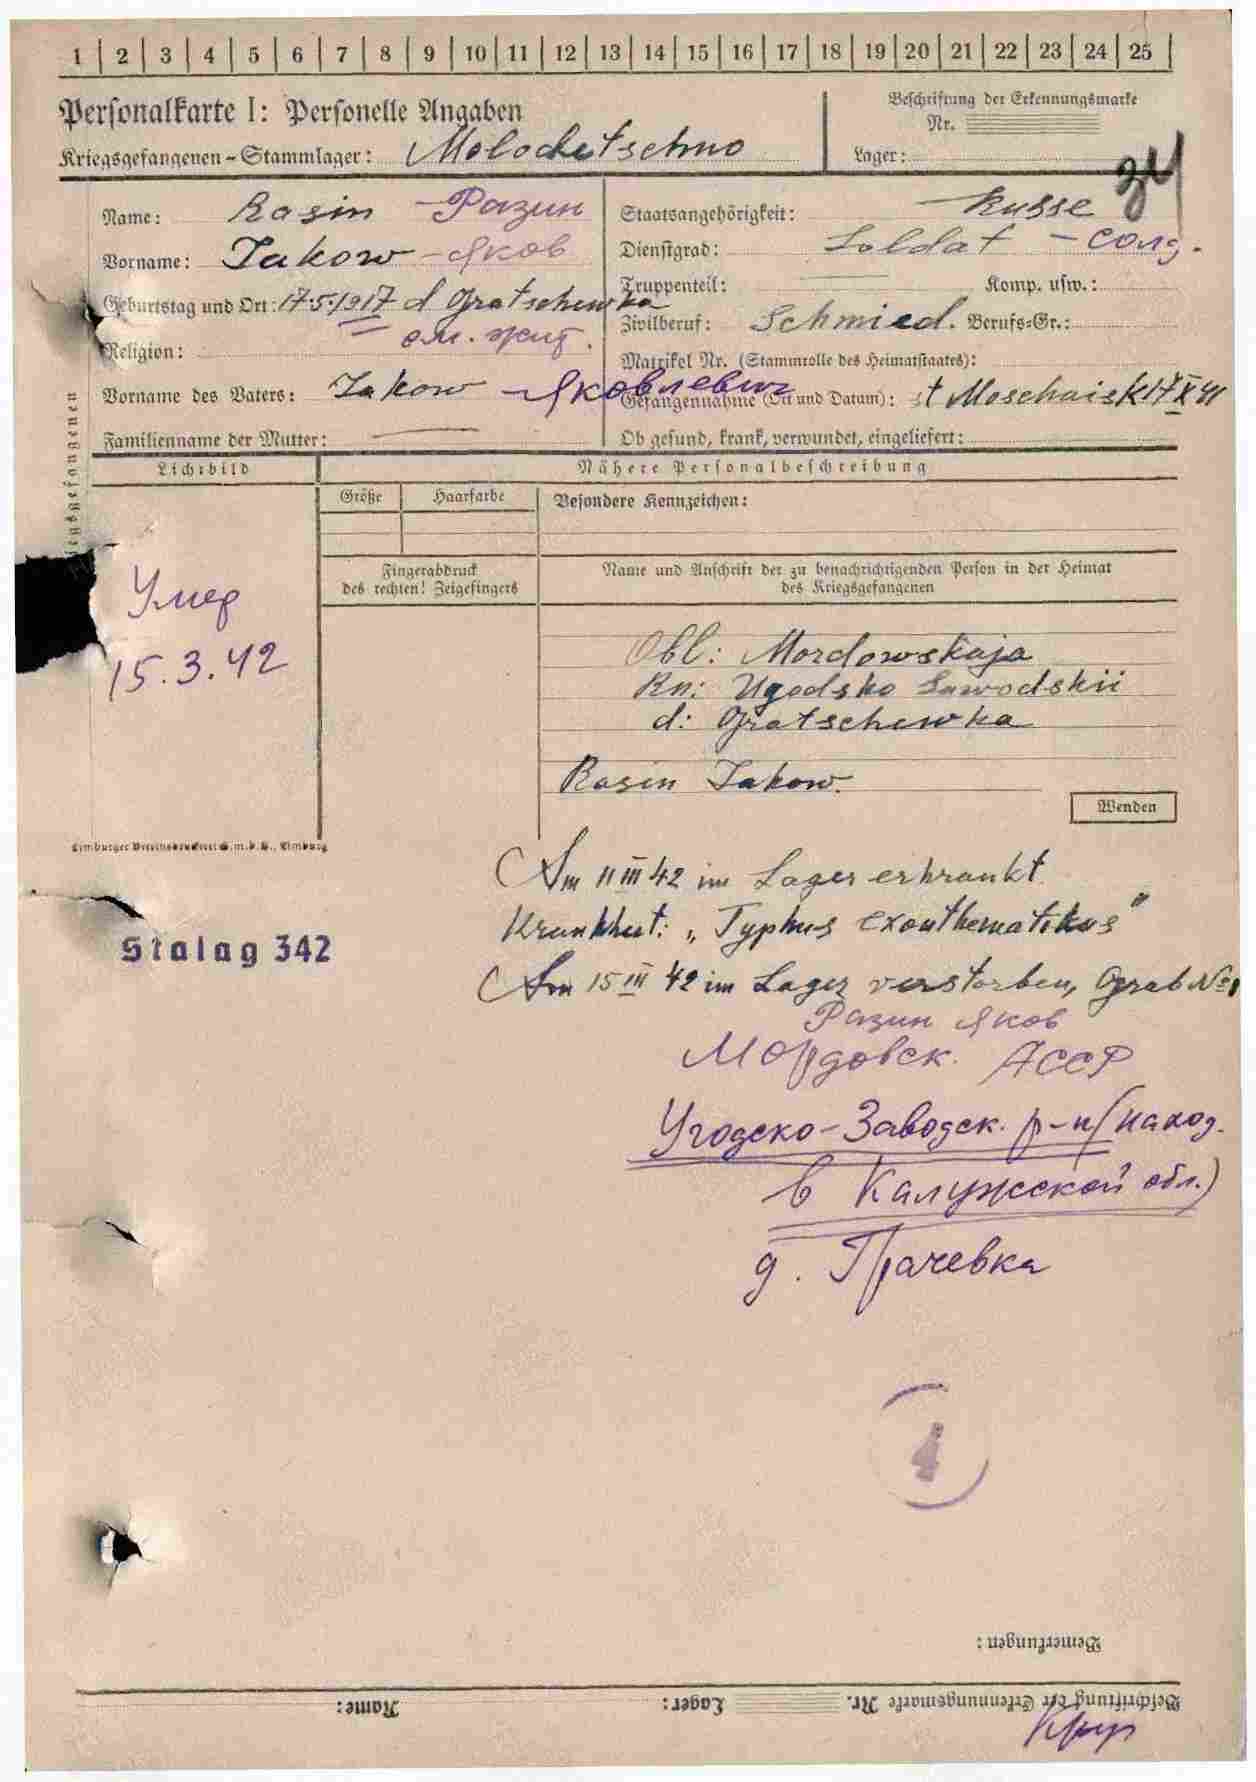 1 | 2 | 3 | 4 | 5 | 6 | 7 | 8 | 9 | 10 | 11 | 12 | 13 | 14 | 15 | 16 | 17 | 18 | 19 | 20 | 21 | 22 | 23 | 24 | 25
Personalkarte I: Personelle Angaben
Kriegsgefangenen-Stammlager: Molodetschno
Beschriftung der Erkennungsmarke
Nr.
Lager:
34
Name: Rasin - Разин
Vorname: Jakow - Яков
Geburtstag und Ort: 17.5.1917 d Gratschewka
см. жит.
Religion:
Vorname des Vaters: Jakow - Яковлевич
Familienname der Mutter:
Staatsangehörigkeit: Russe
Dienstgrad: Soldat - солд.
Truppenteil: Komp. usw.:
Zivilberuf: Schmied. Berufs-Gr.:
Matrikel Nr. (Stammrolle des Heimatstaates):
Gefangennahme (Ort und Datum): st Moschaisk 17 X 41
Ob gesund, krank, verwundet, eingeliefert:
iegsgefangenen
Lichtbild
Nähere Personalbeschreibung
Größe
Haarfarbe
Besondere Kennzeichen:
Fingerabdruck
des rechten! Zeigefingers
Name und Anschrift der zu benachrichtigenden Person in der Heimat
des Kriegsgefangenen
Умер
15.3.42
Obl: Mordowskaja
Rn: Ugodsko Sawodskii
d: Gratschewka
Rasin Jakow.
Wenden
Limburger Vereinsdruckerei G.m.b.H., Limburg
Am 11 III 42 im Lager erkrankt
Krankheit: „Typhus exanthematikus"
Stalag 342
Am 15 III 42 im Lager verstorben, Grab №1
Разин Яков
Мордовск. АССР
Угодско-Заводск. р-н (наход.
в Калужской обл.)
д. Грачевка
4
Bemerkungen:
Beschriftung der Erkennungsmarke Nr. Lager: Name: